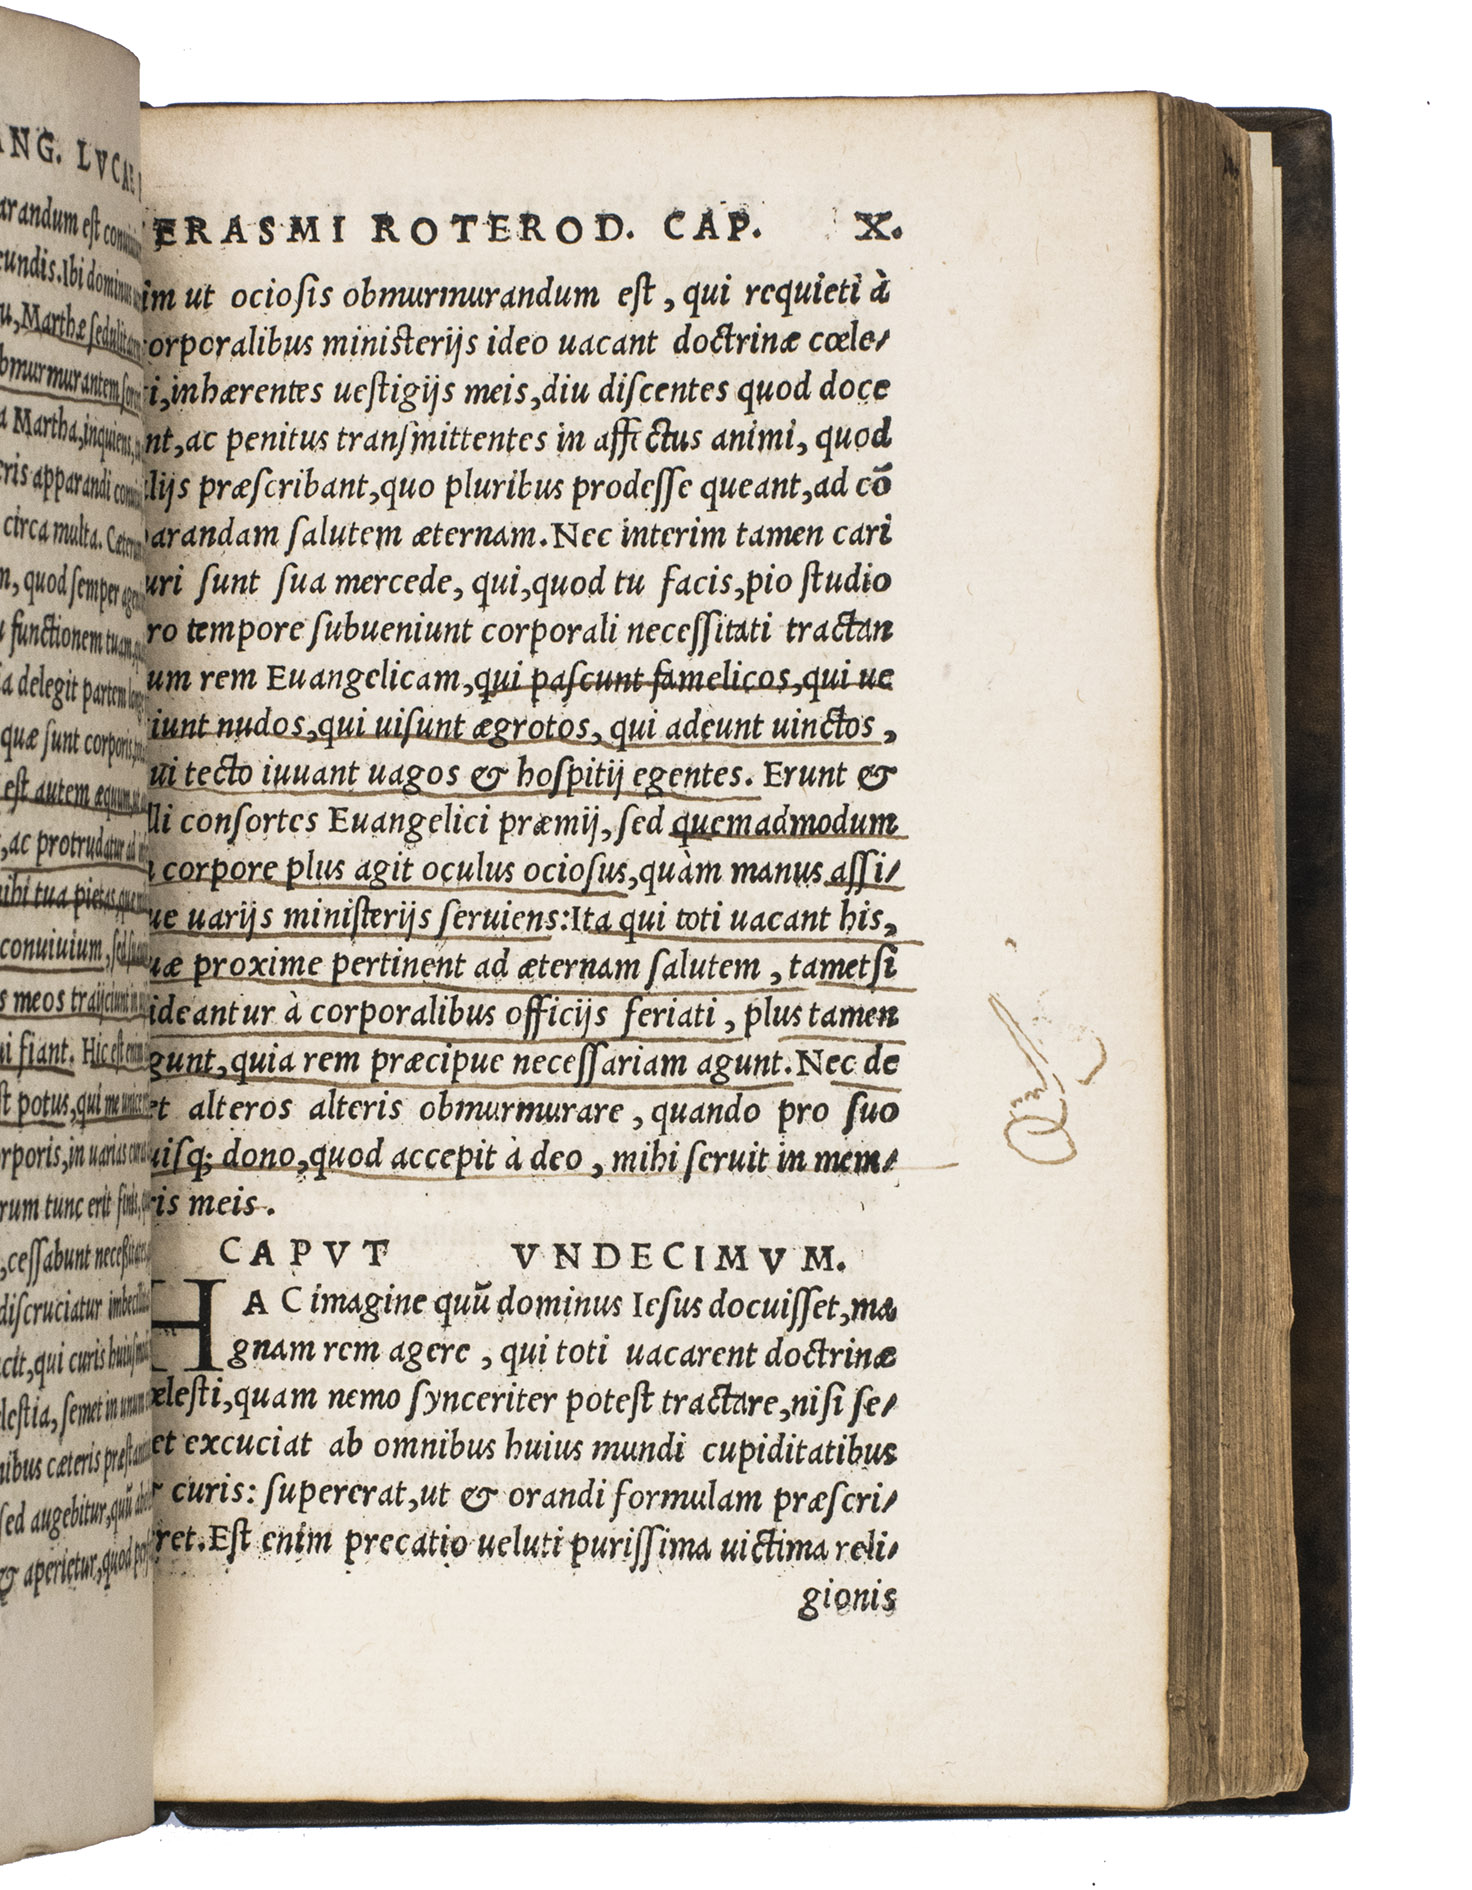 ANG. LVCAE
arandum est
cundis. Ibi dominus
u, Marthæ
obmurmurantem
Martha, inquiens,
cris apparandi
circa multa.
m, quod semper
functionem tuam
a delegit partem
quæ sunt corporis
est autem æquum
, ac protrudatur ad
mihi tua pietas
conuiuium,
s meos traijciunt in
ui fiant. Hic est enim
st potus, qui me unice
corporis, in uarias
rum tunc erit finis,
, cessabunt
discruciatur
cit, qui curis
lestia, semet in unum
nibus cæteris
sed augebitur, quū
& aperietur, quod
ERASMI ROTEROD. CAP. X.
im ut ociosis obmurmurandum est, qui requieti à
corporalibus ministerijs ideo uacant doctrinæ cœle/
ti, inhærentes uestigijs meis, diu discentes quod doce
nt, ac penitus transmittentes in affectus animi, quod
lijs præscribant, quo pluribus prodesse queant, ad cō
arandam salutem æternam. Nec interim tamen cari
uri sunt sua mercede, qui, quod tu facis, pio studio
ro tempore subueniunt corporali necessitati tractan
um rem Euangelicam, qui pascunt famelicos, qui ue
iunt nudos, qui uisunt ægrotos, qui adeunt uinctos,
ui tecto iuuant uagos & hospitij egentes. Erunt &
lli consortes Euangelici præmij, sed quemadmodum
corpore plus agit oculus ociosus, quàm manus assi/
ue uarijs ministerijs seruiens: Ita qui toti uacant his,
uæ proxime pertinent ad æternam salutem, tametsi
ideantur à corporalibus officijs feriati, plus tamen
gunt, quia rem præcipue necessariam agunt. Nec de
et alteros alteris obmurmurare, quando pro suo
uisq; dono, quod accepit à deo, mihi seruit in mem/
ris meis.
CAPVT VNDECIMVM.
HAC imagine quū dominus Iesus docuisset, ma
gnam rem agere, qui toti uacarent doctrinæ
œlesti, quam nemo synceriter potest tractare, nisi se/
et excuciat ab omnibus huius mundi cupiditatibus
curis: supererat, ut & orandi formulam præscri/
ret. Est enim precatio ueluti purissima uictima reli/
gionis